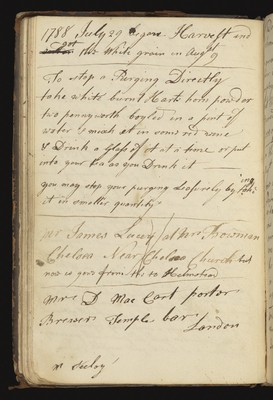 1788 July 29 Begun Harvest and
got this White grain in Augst 9
To stop a Purging Directly
take white burnt Harts horn powder
two penayworth boyled in a pint of
water & much at in some red wine
& Drink a Glass of it at a time or put
into your Tea as you Drink it
you may stop your purging Leasurely by taking
it in smaller quantity
mr James Lacey at mr Bowman
Chelsea Near Chelsea Church but
now is gone from this to Halmstead
Mr D Mac Cart porter
Brewer Temple bar
London